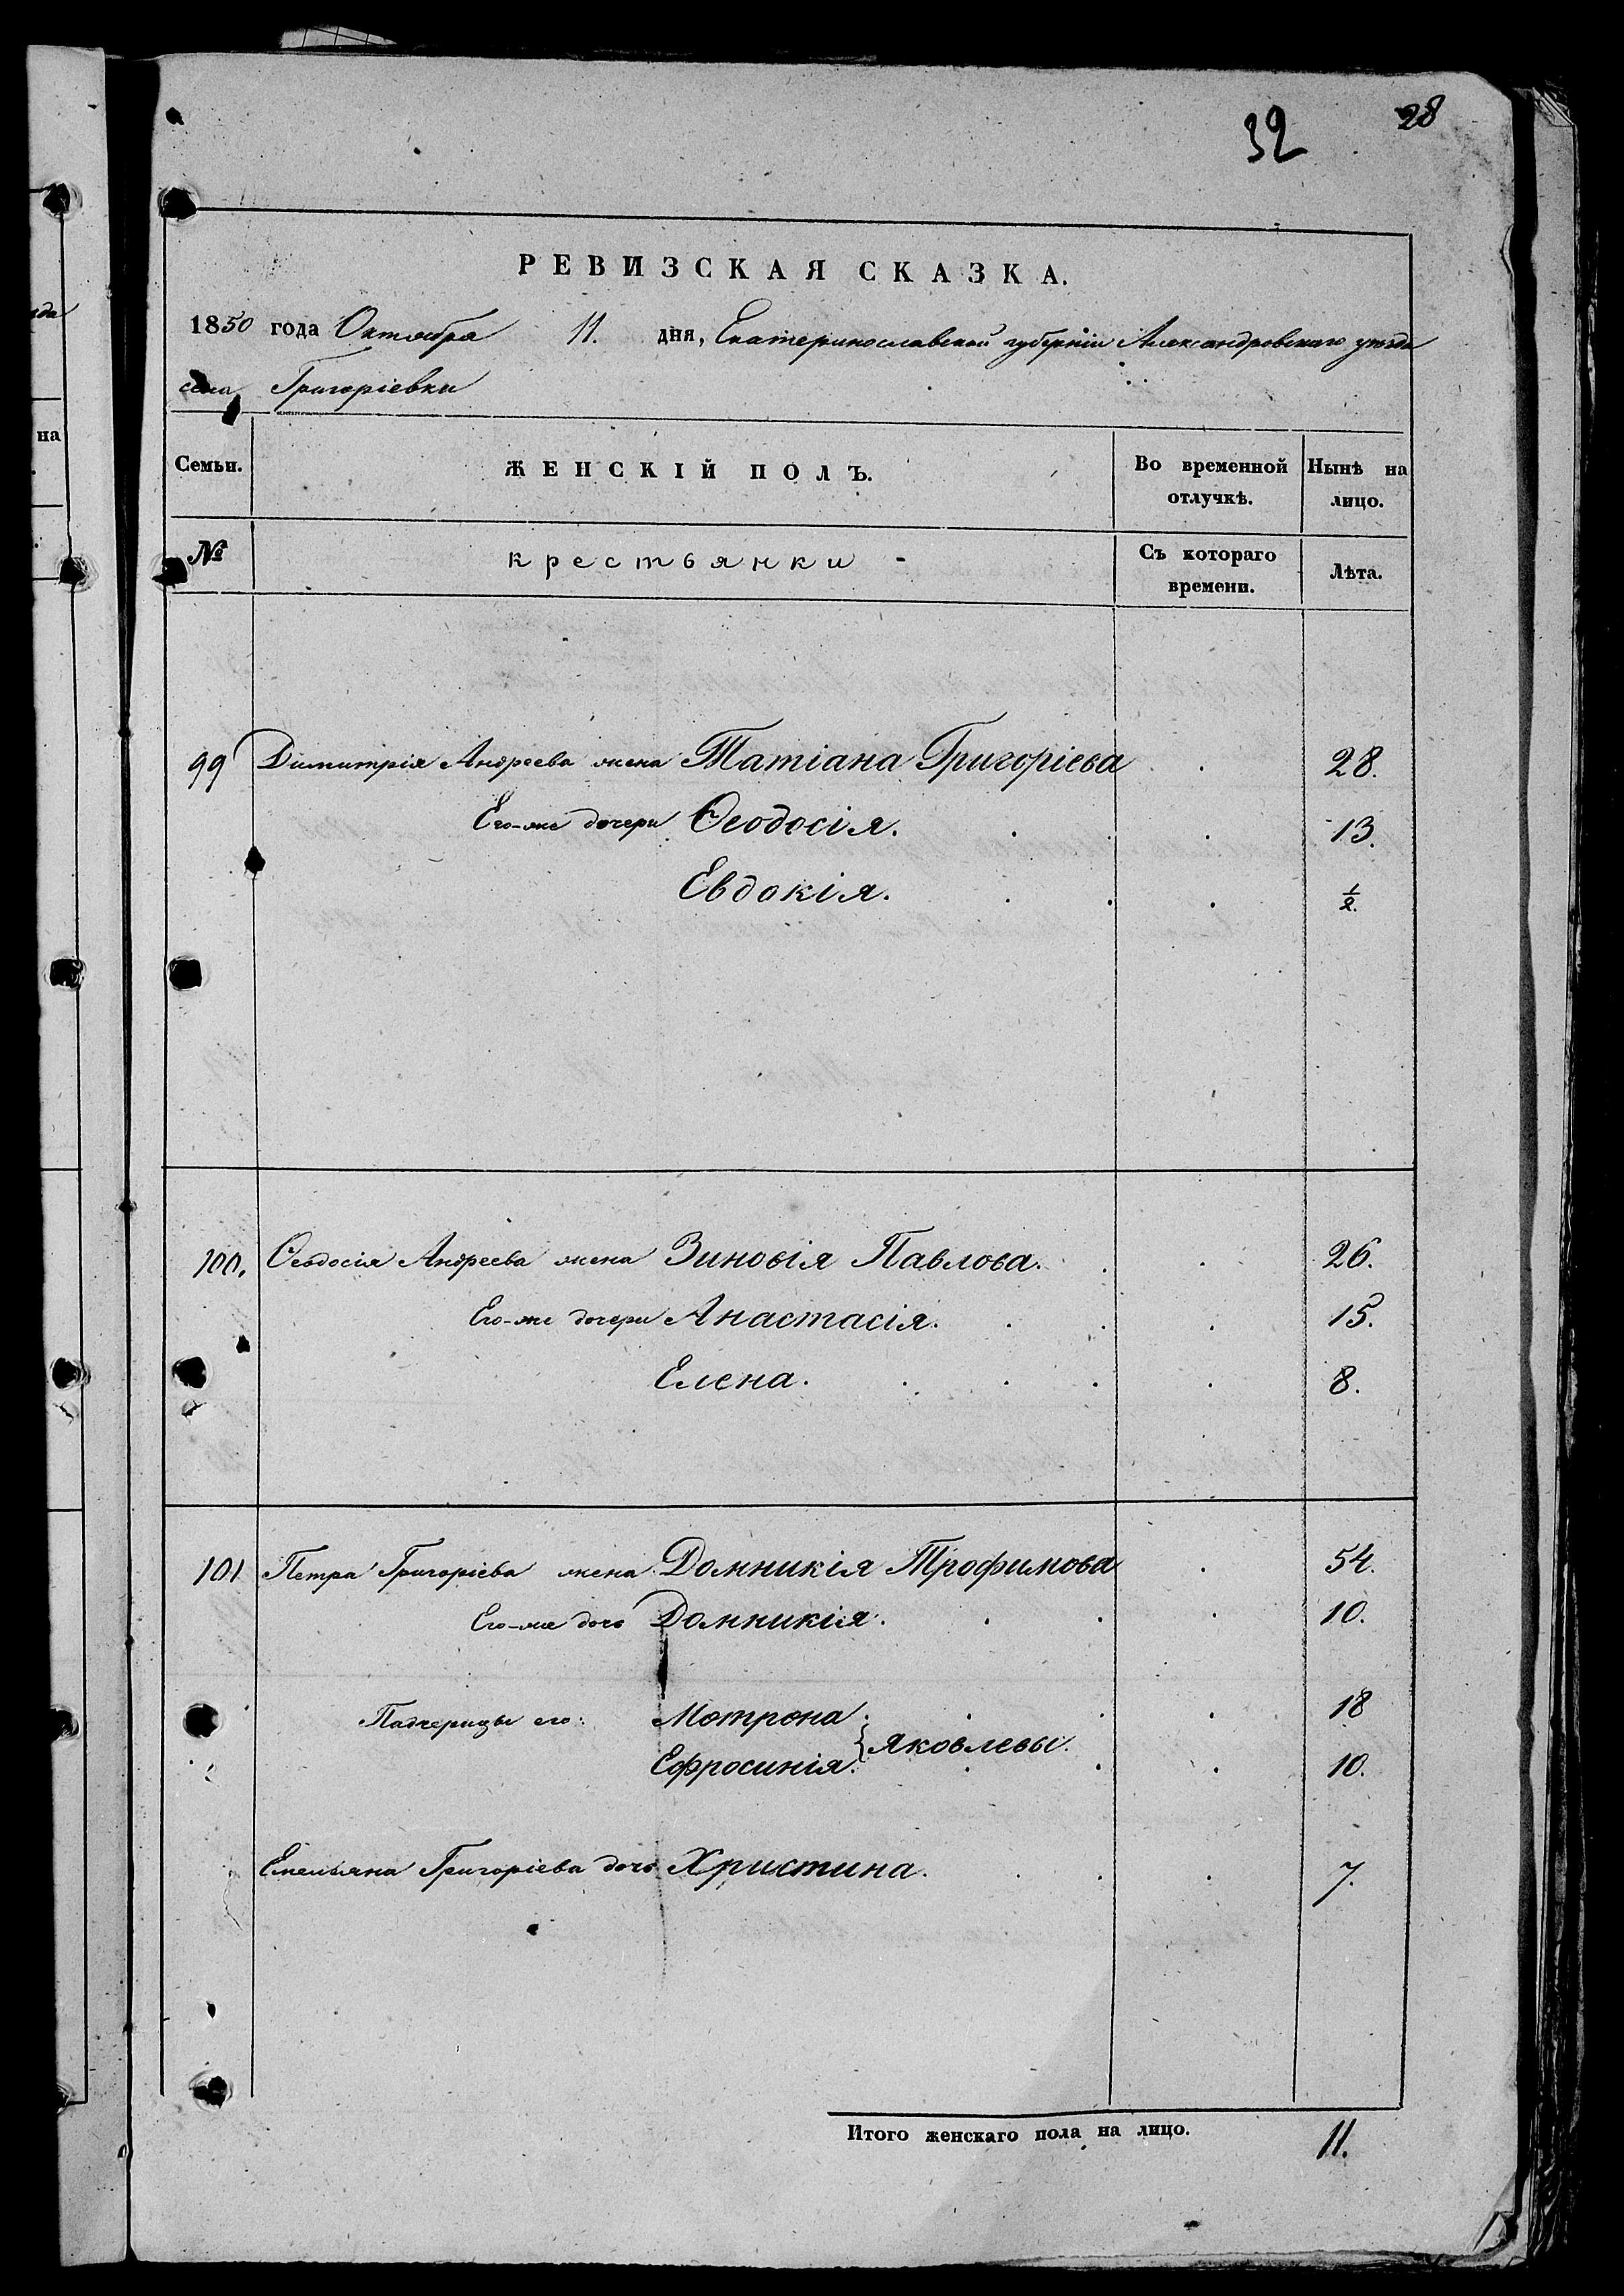 32 28
РЕВИЗСКАЯ СКАЗКА.
1850 года Октября 11. дня, Екатеринославской губерніи Александровскаго уѣзда
села Григоріевки
Семьи. ЖЕНСКІЙ ПОЛЪ. Во временной отлучкѣ. Нынѣ на лицо.
№ крестьянки - Съ котораго времени. Лѣта.
99 Димитрія Андреева жена Татіана Григоріева 28.
Его-же дочери Ѳеодосія. 13.
Евдокія. ½.
100. Ѳеодосія Андреева жена Зиновія Павлова. 26.
Его-же дочери Анастасія. 15.
Елена. 8.
101 Петра Григоріева жена Домникія Трофимова 54.
Его-же дочь Домникія. 10.
Падчерицы его: Мотрона 18
} Яковлевы.
Ефросинія. 10.
Емельяна Григоріева дочь Христина. 7.
Итого женскаго пола на лицо. 11.
да
на